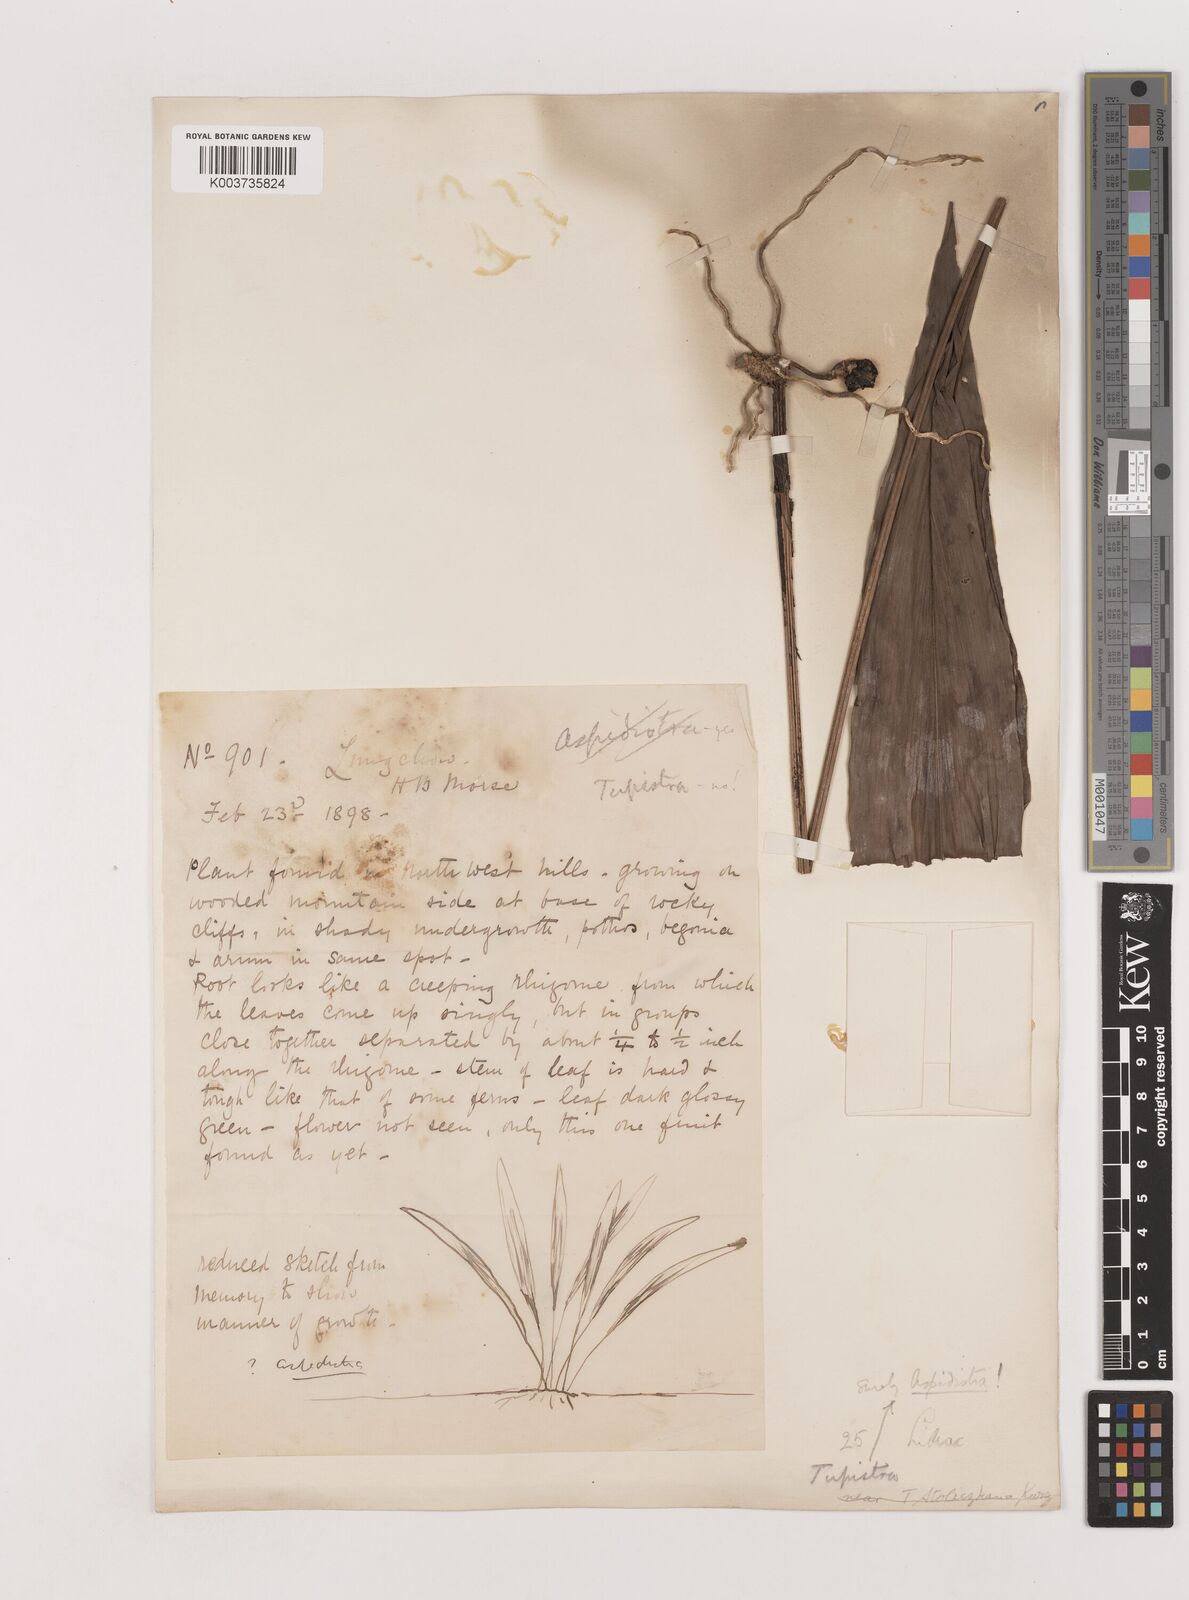 ROYAL BOTANIC GARDENS KEW
K003735824
No 901. Lungchow.
H B Morse
Feb 23rd 1898 -
Aspidistra - yes
Tupistra - no!
Plant found in North west hills - growing on
wooded mountain side at base of rocky
cliffs, in shady undergrowth, pothos, begonia
& arum in same spot -
Root looks like a creeping rhizome from which
the leaves come up singly, but in groups
close together separated by about 1/4 to 1/2 inch
along the rhizome - stem of leaf is hard &
tough like that of some ferns - leaf dark glossy
green - flower not seen, only this one fruit
found as yet -
reduced sketch from
memory to show
manner of growth -
? aspidistra
surely Aspidistra!
25 Liliac
Tupistra
near T. Stoliczkana, Kurz
inches
D50 Illuminant, 2 degree observer
Density
Don Williams
M001047
centimeters
Kew
Royal Botanic Gardens
copyright reserved
0 1 2 3 4 5 6 7 8 9 10
cm